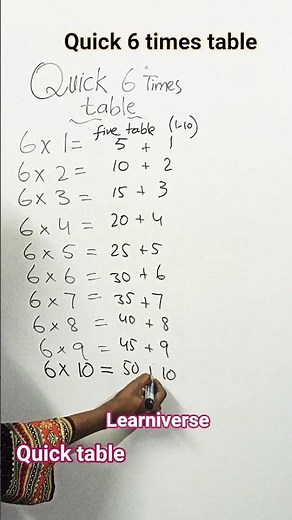 Quick 6 times table
Quick 6 Times
table
five table (1-10)
6 x 1 = 5 + 1
6 x 2 = 10 + 2
6 x 3 = 15 + 3
6 x 4 = 20 + 4
6 x 5 = 25 + 5
6 x 6 = 30 + 6
6 x 7 = 35 + 7
6 x 8 = 40 + 8
6 x 9 = 45 + 9
6 x 10 = 50 + 10
Learniverse
Quick table